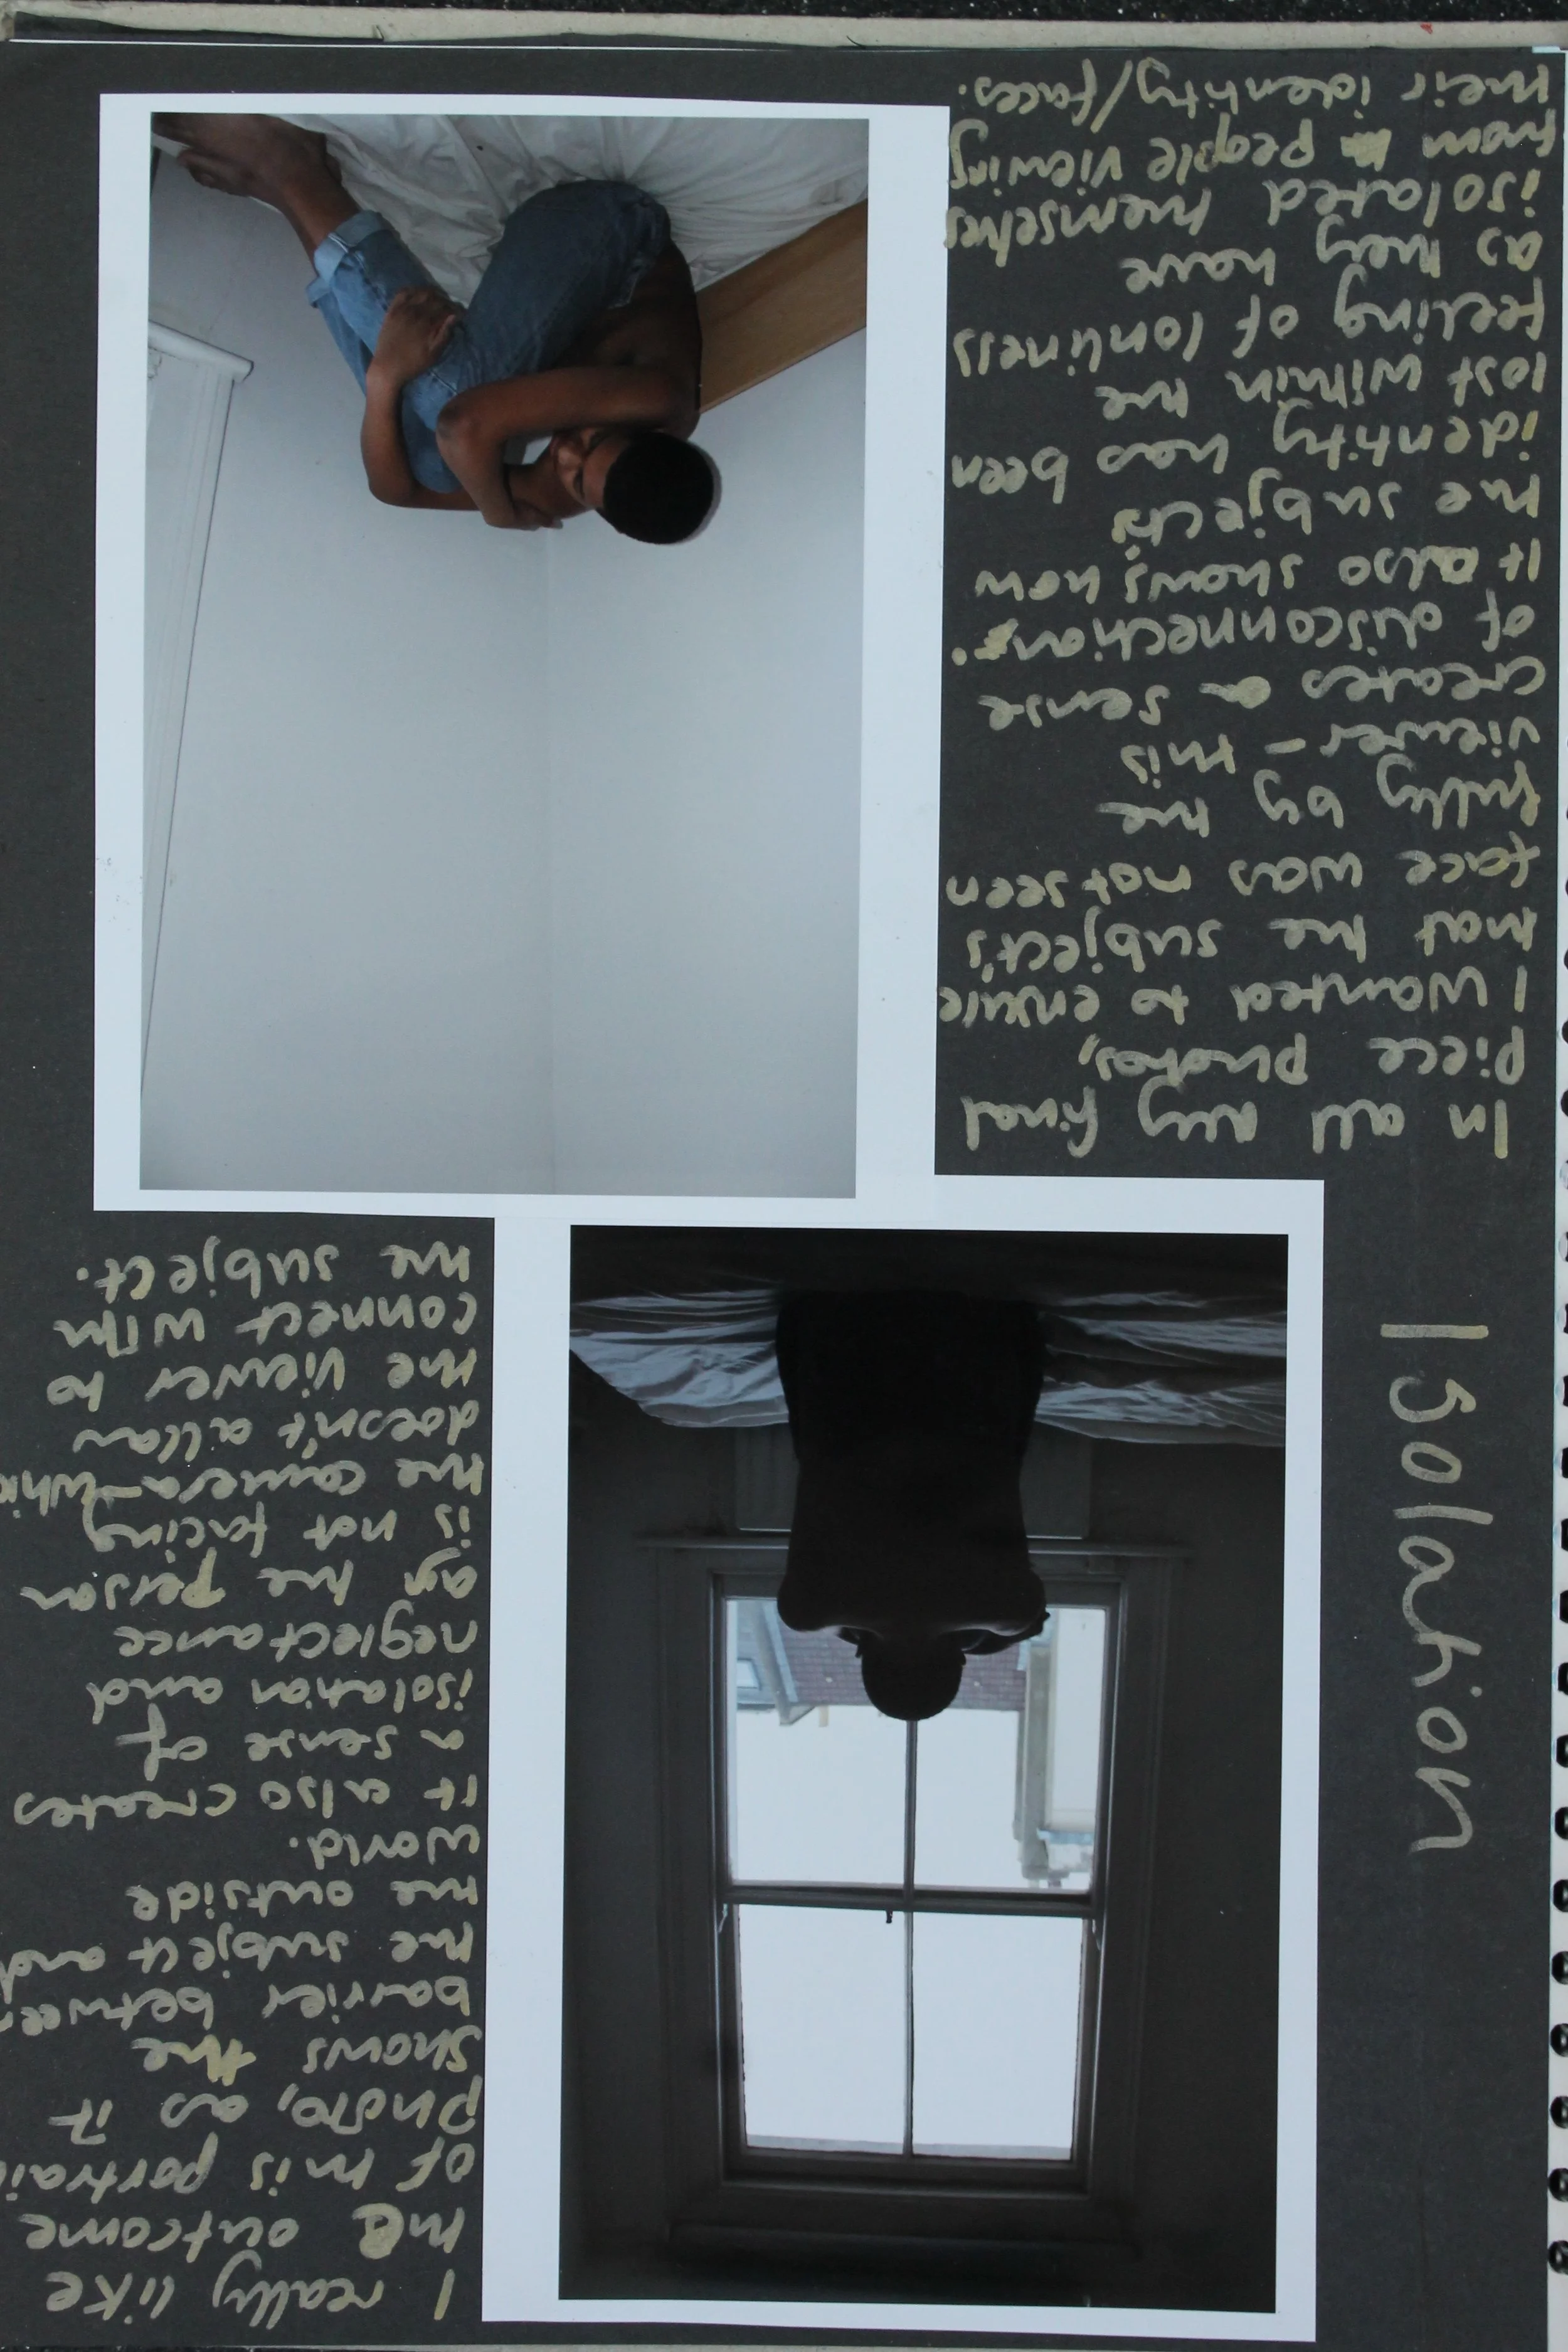 Isolation
I really like
the outcome
of this portrait
photo, as it
shows the
barrier between
the subject and
the outside
world.
It also creates
a sense of
isolation and
neglectance
as the person
is not facing
the camera-which
doesn't allow
the viewer to
connect with
the subject.
In all my final
piece photos,
I wanted to ensure
that the subject's
face was not seen
fully by the
viewer - this
creates a sense
of disconnection.
It also shows how
the subjects
identity has been
lost within the
feeling of lonliness
as they have
isolated themselves
from people viewing
their identity/faces.